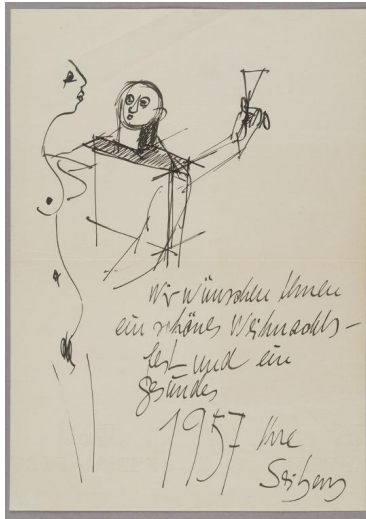 Wir wünschen Ihnen
ein schönes Weihnachts-
fest und ein
gesundes
1957 Ihre